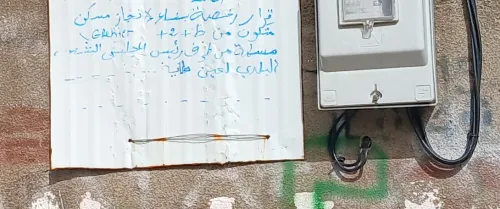 قرار رخصة بناء لانجاز مسكن
متكون من ط+2+
مسلمة من طرف رئيس المجلس الشعبي
البلدي لعين طاية